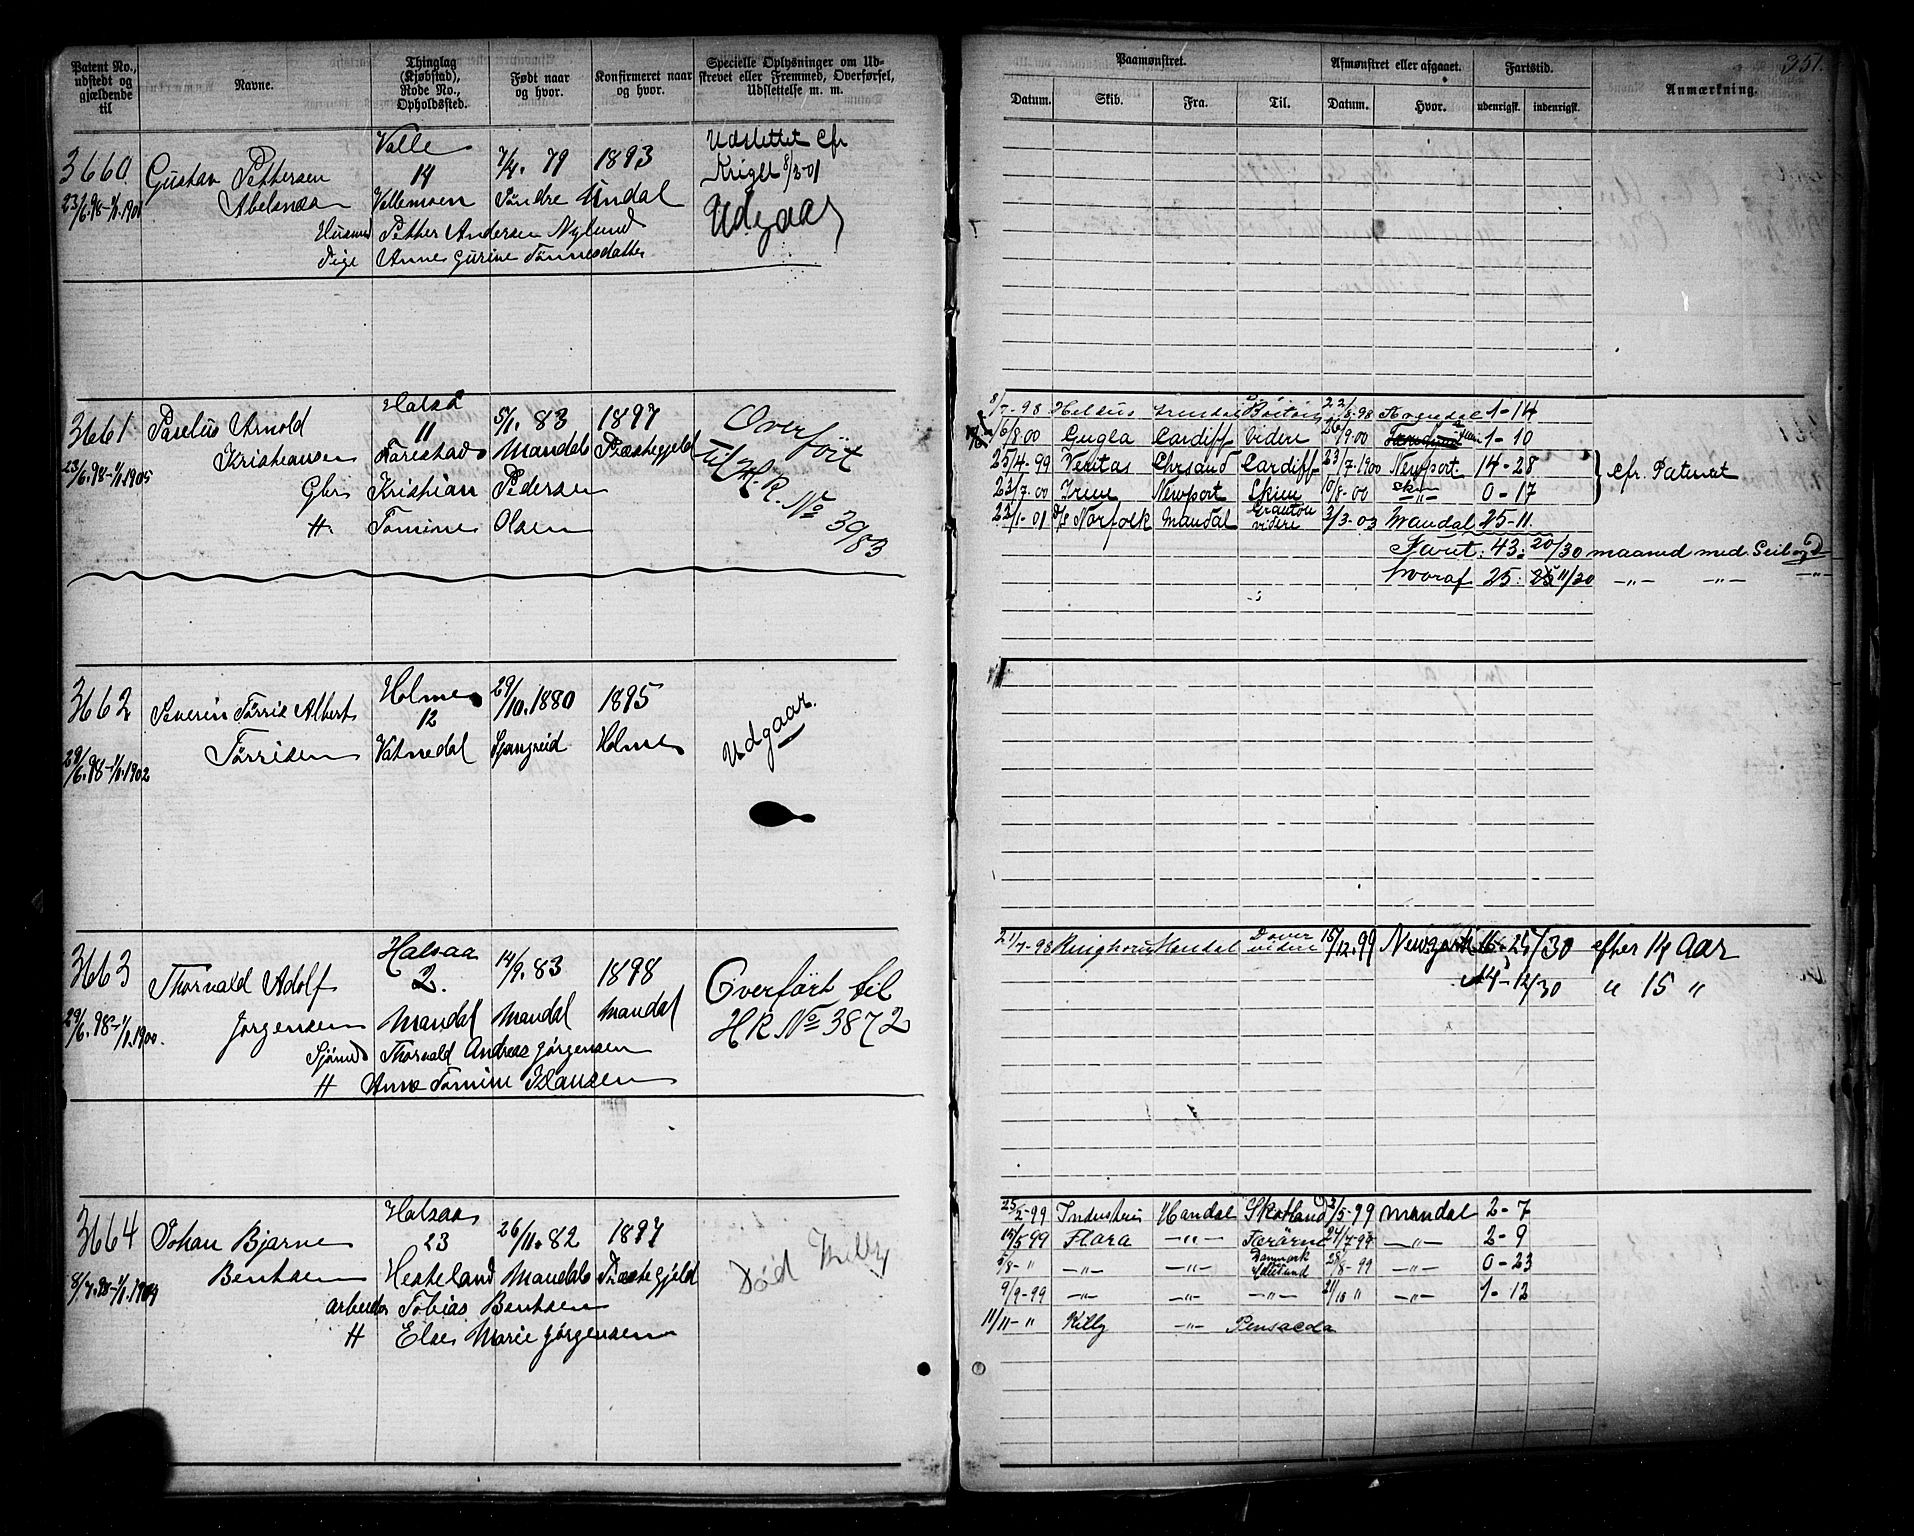 Patent No., udstedt og gjældende til
Navne.
Thinglag (Kjøbstad), Rode No., Opholdssted.
Født naar og hvor.
Konfirmeret naar og hvor.
Specielle Oplysninger om Udskrevet eller Fremmed, Overførsel, Udslettelse m. m.
Paamønstret.
Afmønstret eller afgaaet.
Fartstid.
Anmærkning.
351.
Datum.
Skib.
Fra.
Til.
Datum.
Hvor.
udenrigsk.
indenrigsk.
3660
23/6.98-1/1.1901
Gustav Pettersen
Abelsnæs
Valle
14
Vallemoen
7/4. 79
Söndre Undal
1893
Husmd Petter Andersen Nylund
Pige Anne Gurine Tönnesdatter
Udslettet cfr
8/3-01
Udgaar
3661
23/6.98-1/1.1905
Paselius Arnold
Kristiansen
Halsaa
11
Tarestad
5/1. 83
Mandals
1897
Præstegjeld
Gbr Kristian Pedersen
H Tomine Olsen
Overført
til H.R. No 3983
8/7-98 Mandal 1-14
6/8.00 Gugla Cardiff Videre 26/9.00 1-10
25/4-99 Veritas Chrsand Cardiff 23/7.1900 Newport 14-28
cfr. Patentet
23/7.00 Irene Newport Skien 10/8-00 0-17
22/1-01 D/S Norfolk Mandal Granton videre 2/3-03 Mandal 25-11.
Faret: 43: 20/30 maaned med Seil og D
hvoraf 25: 11/30 -„- -„- -„-
3662
29/6.98-1/1.1902
Severin Törris Albert
Törrisen
Holme
12
Vatnedal
29/10.1880
Spangreid
1895
Holme
Udgaar.
3663
29/6.98-1/1.1900.
Thorvald Adolf
Jørgensen
Halsaa
2.
Mandal
14/9. 83
Mandal
1898
Mandal
Sjömd Thorvald Andreas Jørgensen
H Anne Tomine Klausen
Overført til
HR No 3872
21/7-98 Ringhorn Mandal Dover videre 15/12.99 Newyork 16-25/30 efter 14 Aar
14-12/30 „ 15 „
3664
8/7.98-1/1.1904
Johan Bjarne
Bentsen
Halsaa
23
Hesteland
26/11. 82
Mandals
1897
Præstegjeld
Arbeider Tobias Bentsen
H Else Marie Jørgensen
Død Killy
25/2-99 Industri Mandal Skotland 2/5-99 Mandal 2-7
15/5-99 Flora -„- Færöerne 24/7-99 -„- 2-9
5/8-„ -„- -„- Danmark 28/8-99 -„- 0-23
9/9-99 -„- -„- -„- 21/10 „ -„- 1-12
11/11-„ Killy -„- Pensacola